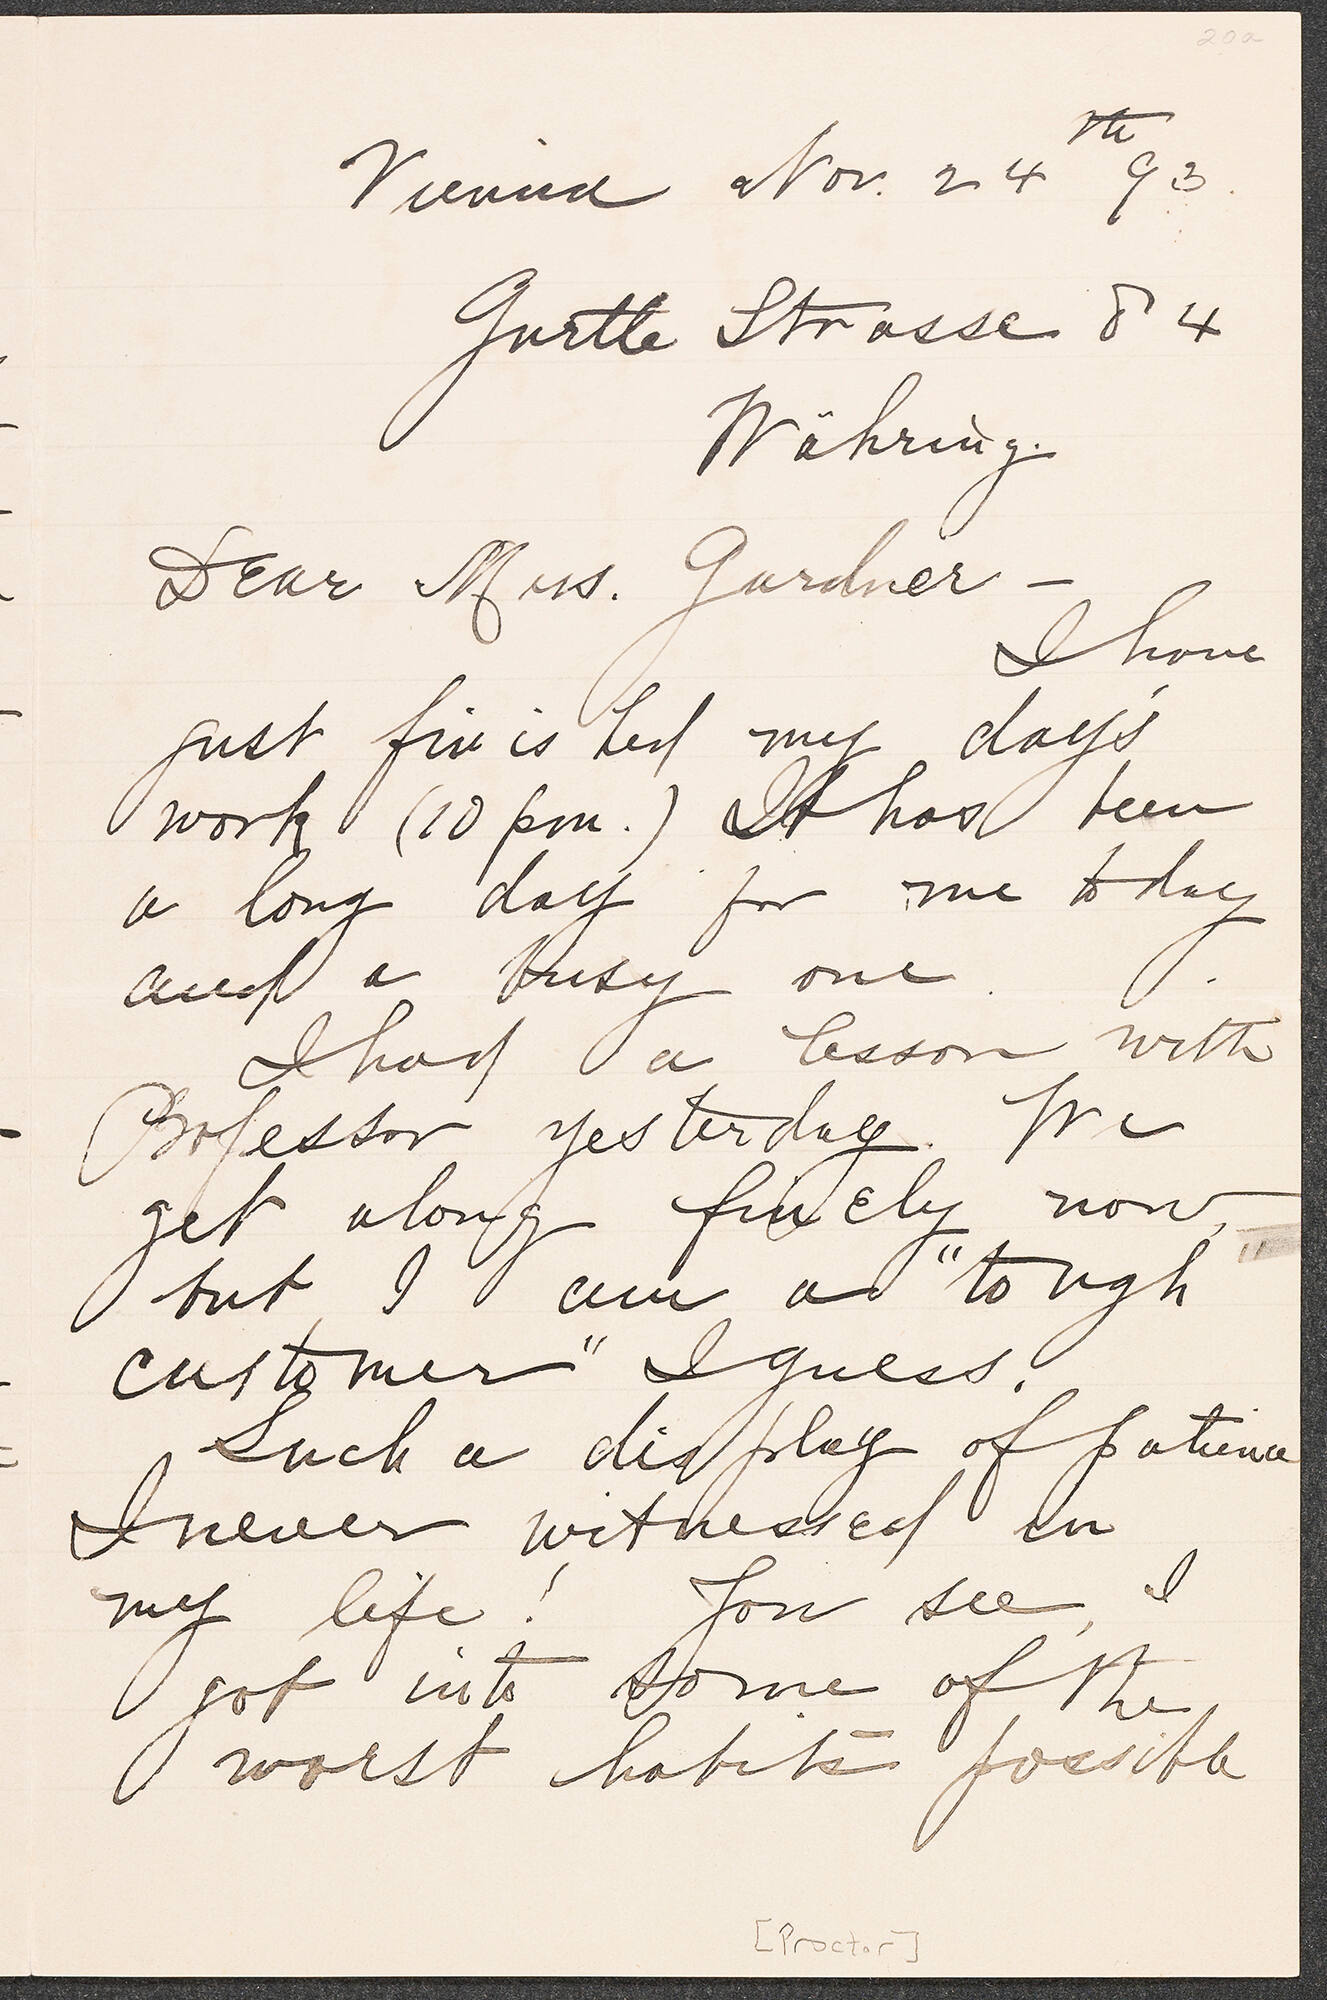 20a
Vienna Nov. 24th 93.
Gurtle Strasse 84
Währing.
Dear Mrs. Gardner –
I have
just finished my day's
work (10 pm.) It has been
a long day for me today
and a busy one.
I had a lesson with
Professor yesterday. We
get along finely now,
but I am a "tough"
customer" I guess.
Such a display of patience
I never witnessed in
my life! You see, I
got into some of the
worst habits possible
[Proctor]